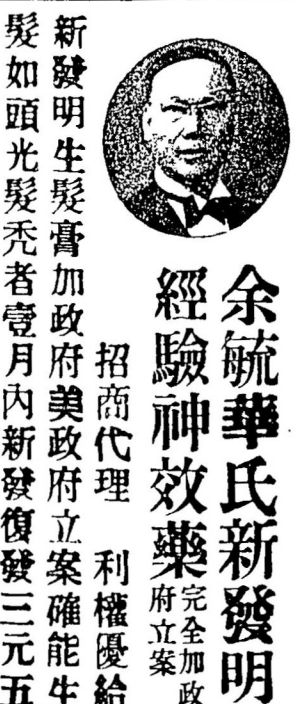 余毓華氏新發明
經驗神效藥
完全加政
府立案
招商代理 利權優給
新發明生髮膏加政府美政府立案確能生
髮如頭光髮禿者壹月內新發復發三元五